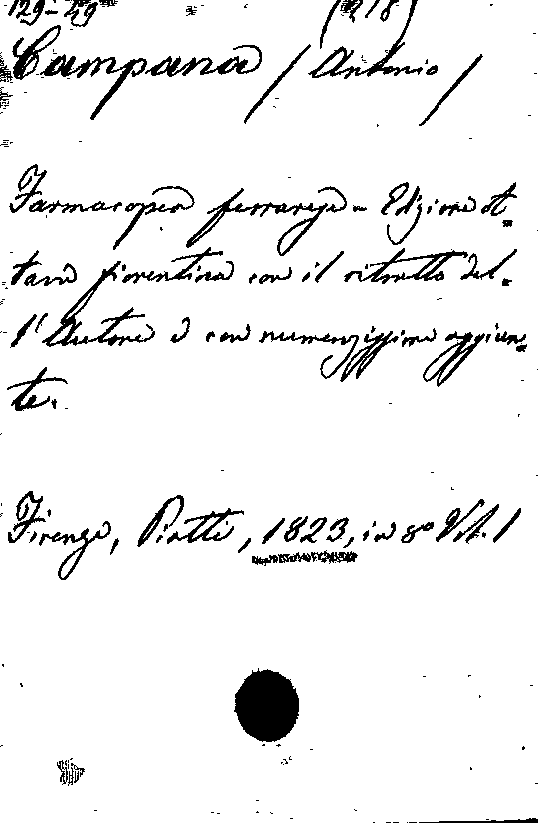 129-49 (218)
Campana / Antonio /
Farmacopea ferrarese - Edizione ot=
tava fiorentina con il ritratto del=
l'Autore e con numerosissime aggiun=
te.
Firenze, Piatti, 1823, in 8º Vol. 1